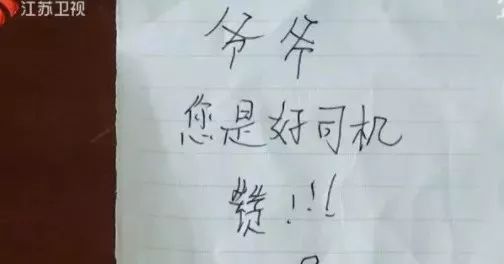 江苏卫视
爷爷
您是好司机
赞!!!